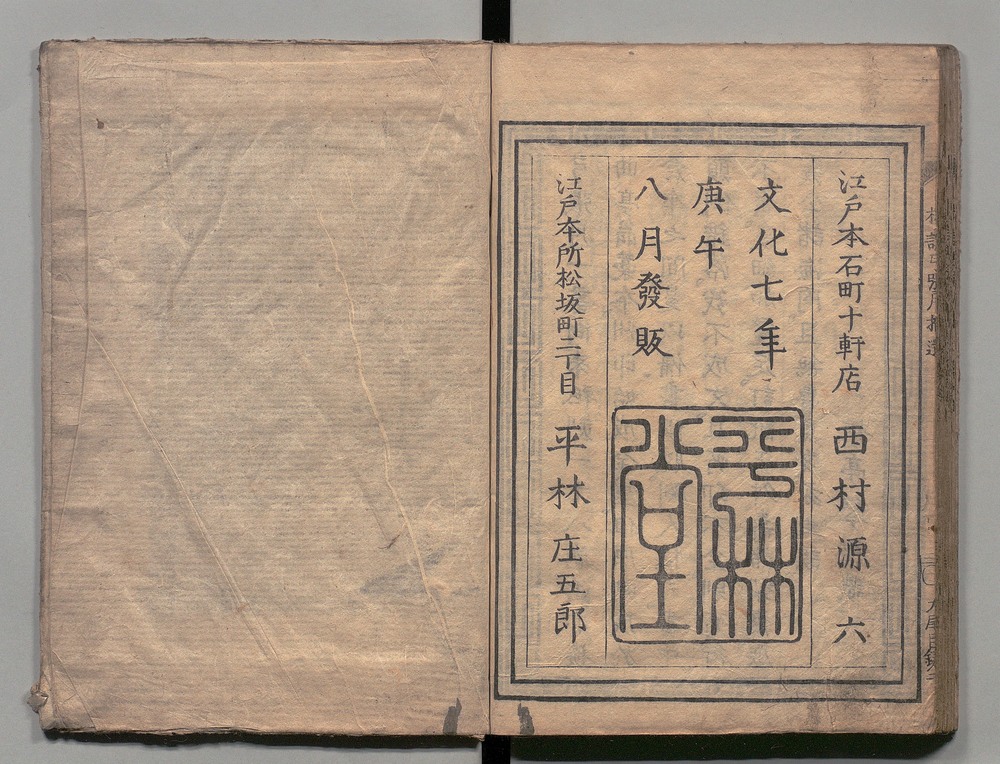 江戸本石町十軒店 西村源六
文化七年
庚午
八月發販
平林堂
江戸本所松坂町二丁目 平林庄五郎